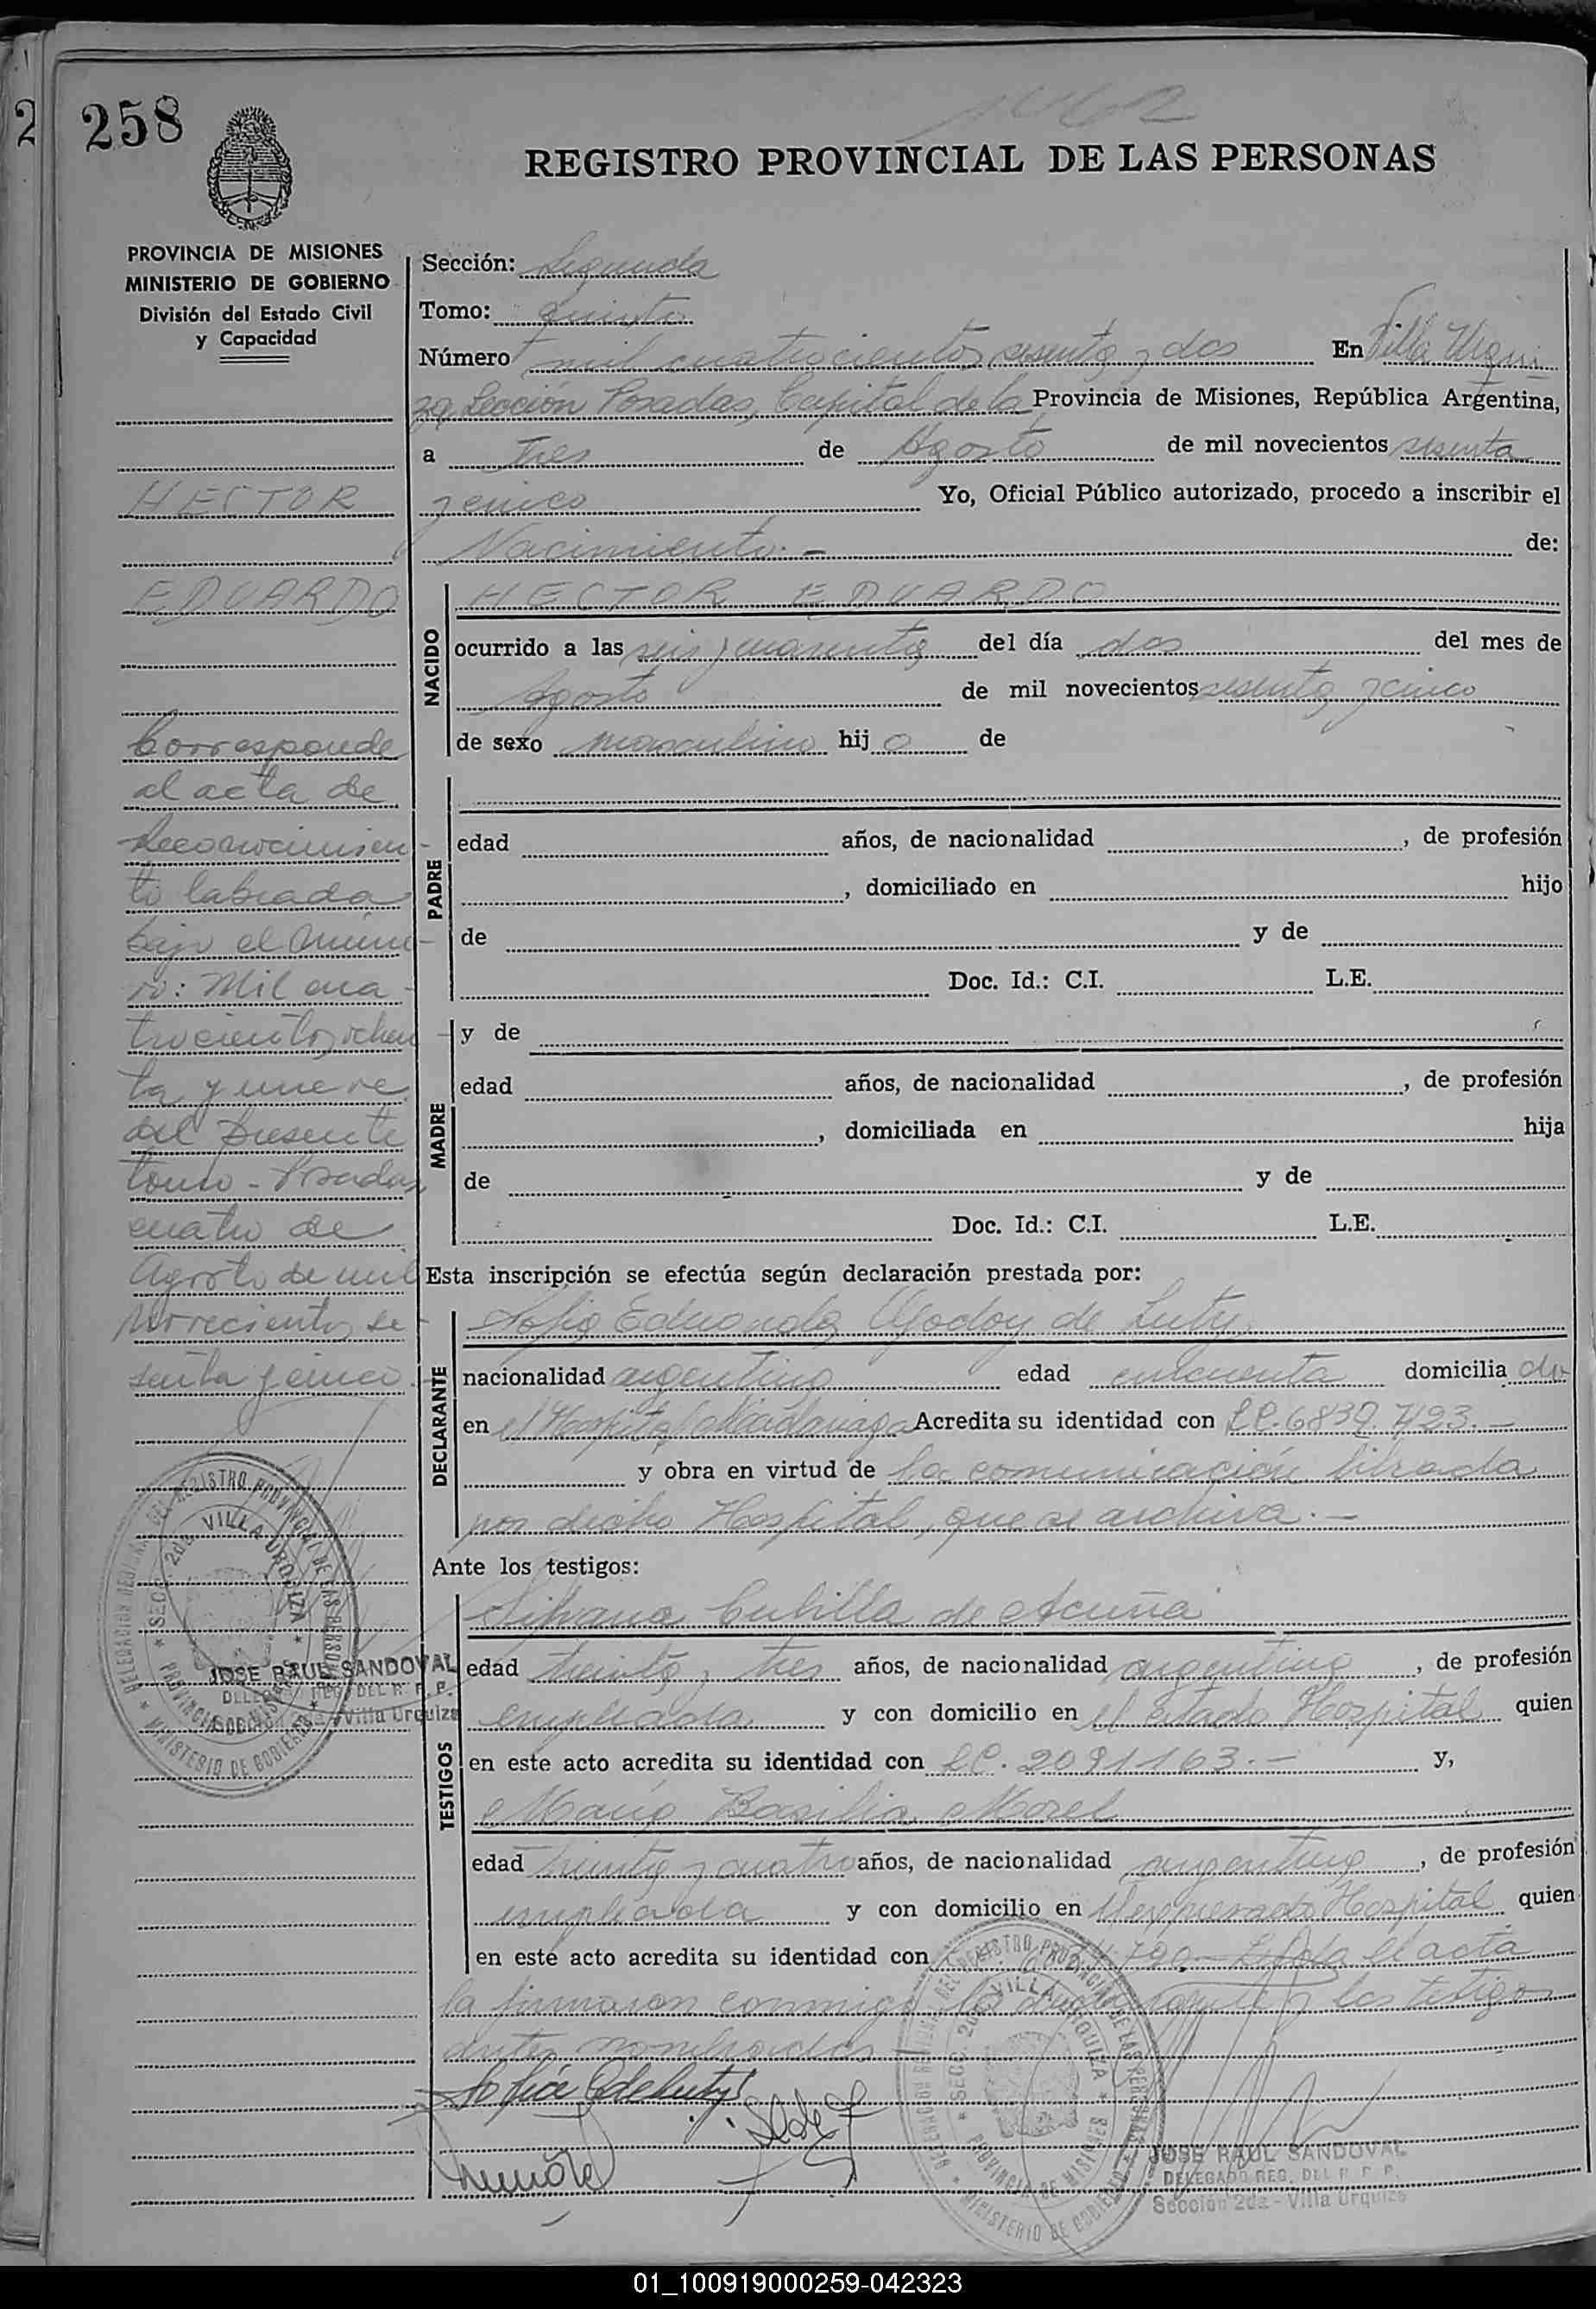 258
1462
REGISTRO PROVINCIAL DE LAS PERSONAS
PROVINCIA DE MISIONES
MINISTERIO DE GOBIERNO
División del Estado Civil
y Capacidad
HECTOR
EDUARDO
Corresponde
al acta de
Reconocimien-
to labrada
bajo el núme-
ro: Mil cua-
trocientos ochen
ta y nueve
del presente
tomo - Posadas,
cuatro de
Agosto de mil
novecientos se-
senta y cinco.
Sección: Segunda
Tomo: Quinto
Número mil cuatrocientos sesenta y dos En Villa Urqui
za, Sección Posadas, Capital de la Provincia de Misiones, República Argentina,
a Tres de Agosto de mil novecientos sesenta
y cinco Yo, Oficial Público autorizado, procedo a inscribir el
Nacimiento.- de:
NACIDO
HECTOR EDUARDO
ocurrido a las seis y cuarenta del día dos del mes de
Agosto de mil novecientos sesenta y cinco
de sexo masculino hijo de
PADRE
edad años, de nacionalidad , de profesión
, domiciliado en hijo
de y de
Doc. Id.: C.I. L.E.
MADRE
y de
edad años, de nacionalidad , de profesión
, domiciliada en hija
de y de
Doc. Id.: C.I. L.E.
Esta inscripción se efectúa según declaración prestada por:
DECLARANTE
Sofia Eduarda Godoy de Luty
nacionalidad argentina edad cincuenta domicilia da
en el Hospital Madariaga Acredita su identidad con LC. 6839.423.-
y obra en virtud de la comunicación librada
por dicho Hospital, que se archiva.-
Ante los testigos:
TESTIGOS
Silvana Cubilla de Acuña
edad treinta y tres años, de nacionalidad argentina , de profesión
empleada y con domicilio en el citado Hospital quien
en este acto acredita su identidad con LC. 2091163.- y,
María Basilia Morel
edad treinta y cuatro años, de nacionalidad argentina , de profesión
empleada y con domicilio en el expresado Hospital quien
en este acto acredita su identidad con 790.- Leída el acta
la firmaron conmigo la declarante y los testigos
antes nombrados
Sofia G de Luty
DELEGACION REGIONAL DEL REGISTRO PROVINCIAL DE LAS PERSONAS
SECC. 2da. VILLA URQUIZA
PROVINCIA DE MISIONES
MINISTERIO DE GOBIERNO
JOSE RAUL SANDOVAL
DELEGADO REG. DEL R. P. P.
Sección 2da - Villa Urquiza
DELEGACION REGIONAL DEL REGISTRO PROVINCIAL DE LAS PERSONAS
SECC. 2da. VILLA URQUIZA
PROVINCIA DE MISIONES
MINISTERIO DE GOBIERNO
JOSE RAUL SANDOVAL
DELEGADO REG. DEL R. P. P.
Sección 2da - Villa Urquiza
01_100919000259-042323